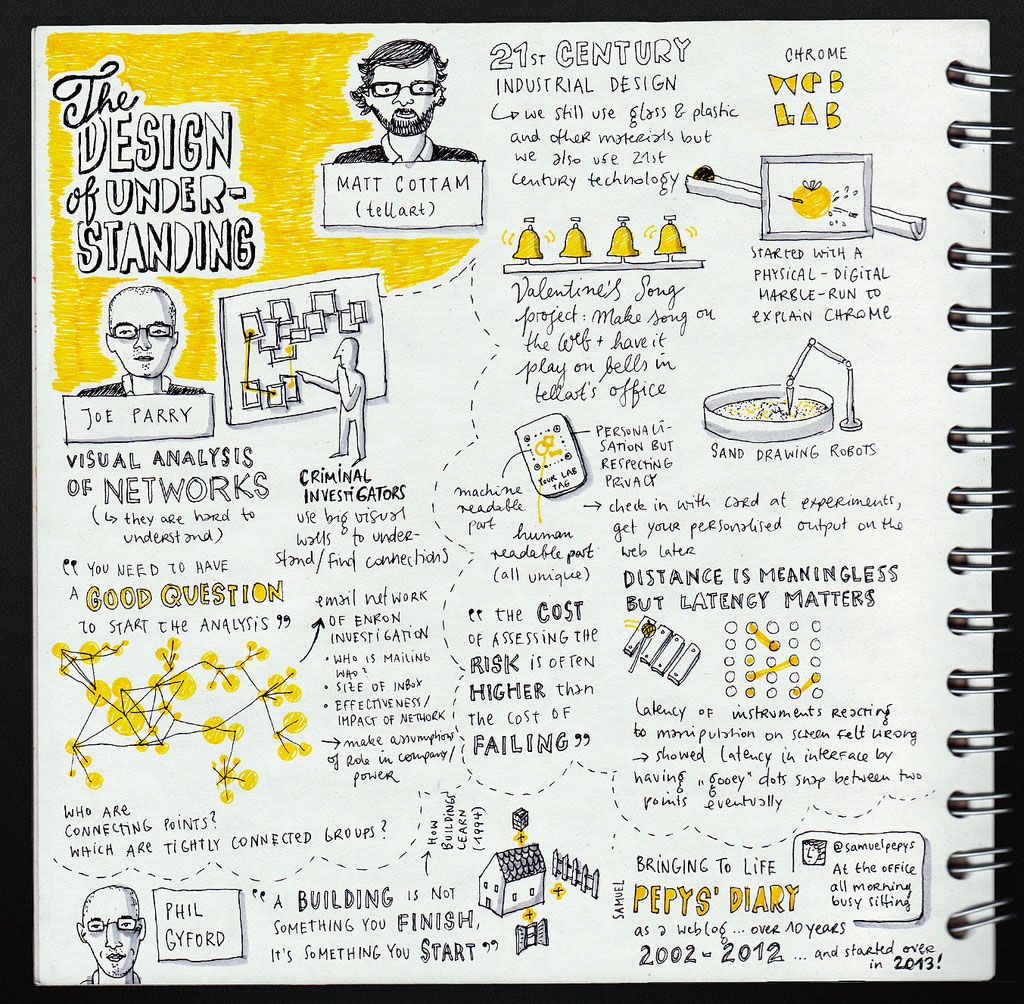 The
DESIGN
of UNDER-
STANDING
MATT COTTAM
(tellart)
JOE PARRY
VISUAL ANALYSIS
OF NETWORKS
(↳ they are hard to
understand)
CRIMINAL
INVESTIGATORS
use big visual
walls to under-
stand/find connections
“YOU NEED TO HAVE
A GOOD QUESTION
TO START THE ANALYSIS”
email network
OF ENRON
INVESTIGATION
• WHO IS MAILING
WHO?
• SIZE OF INBOX
• EFFECTIVENESS/
IMPACT OF NETWORK
→ make assumptions
of role in company/
power
WHO ARE
CONNECTING POINTS?
WHICH ARE TIGHTLY CONNECTED GROUPS?
21ST CENTURY
INDUSTRIAL DESIGN
↳ we still use glass & plastic
and other materials but
we also use 21st
century technology
CHROME
WEB
LAB
STARTED WITH A
PHYSICAL-DIGITAL
MARBLE-RUN TO
EXPLAIN CHROME
Valentine's Song
project: Make song on
the Web + have it
play on bells in
tellart's office
SAND DRAWING ROBOTS
YOUR LAB
TAG
PERSONALI-
SATION BUT
RESPECTING
PRIVACY
machine
readable
part
human
readable part
(all unique)
→ check in with card at experiments,
get your personalised output on the
web later
“THE COST
OF ASSESSING THE
RISK is often
HIGHER than
the cost OF
FAILING”
DISTANCE IS MEANINGLESS
BUT LATENCY MATTERS
latency of instruments reacting
to manipulation on screen felt wrong
→ showed latency in interface by
having „gooey“ dots snap between two
points eventually
PHIL
GYFORD
“A BUILDING is NOT
SOMETHING YOU FINISH,
IT'S SOMETHING YOU START”
HOW
BUILDINGS
LEARN
(1994)
BRINGING TO LIFE
SAMUEL
PEPYS' DIARY
as a weblog ... over 10 years
2002 - 2012 ... and started over
in 2013!
@samuelpepys
At the office
all morning
busy sitting